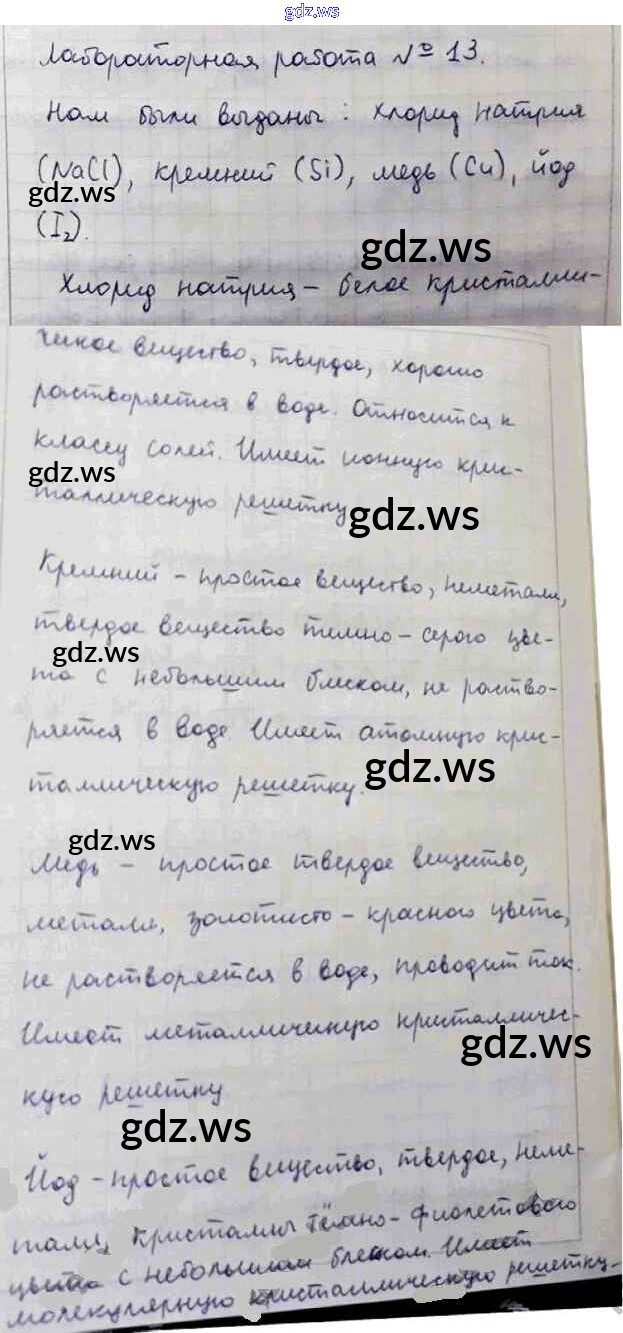 gdz.ws
Лабораторная работа № 13.
Нам были выданы: хлорид натрия
(NaCl), кремний (Si), медь (Cu), йод
gdz.ws
(I₂).
gdz.ws
Хлорид натрия – белое кристалли-
ческое вещество, твердое, хорошо
растворяется в воде. Относится к
классу солей. Имеет ионную крис-
gdz.ws
таллическую решетку
gdz.ws
Кремний – простое вещество, неметалл,
твердое вещество темно-серого цве-
gdz.ws
та с небольшим блеском, не раство-
ряется в воде. Имеет атомную крис-
таллическую решетку.
gdz.ws
gdz.ws
Медь – простое твердое вещество,
металл, золотисто-красного цвета,
не растворяется в воде, проводит ток.
Имеет металлическую кристалличес-
gdz.ws
кую решетку.
gdz.ws
Йод – простое вещество, твердое, неме-
талл, кристаллы тёмно-фиолетового
цвета с небольшим блеском. Имеет
молекулярную кристаллическую решетку.